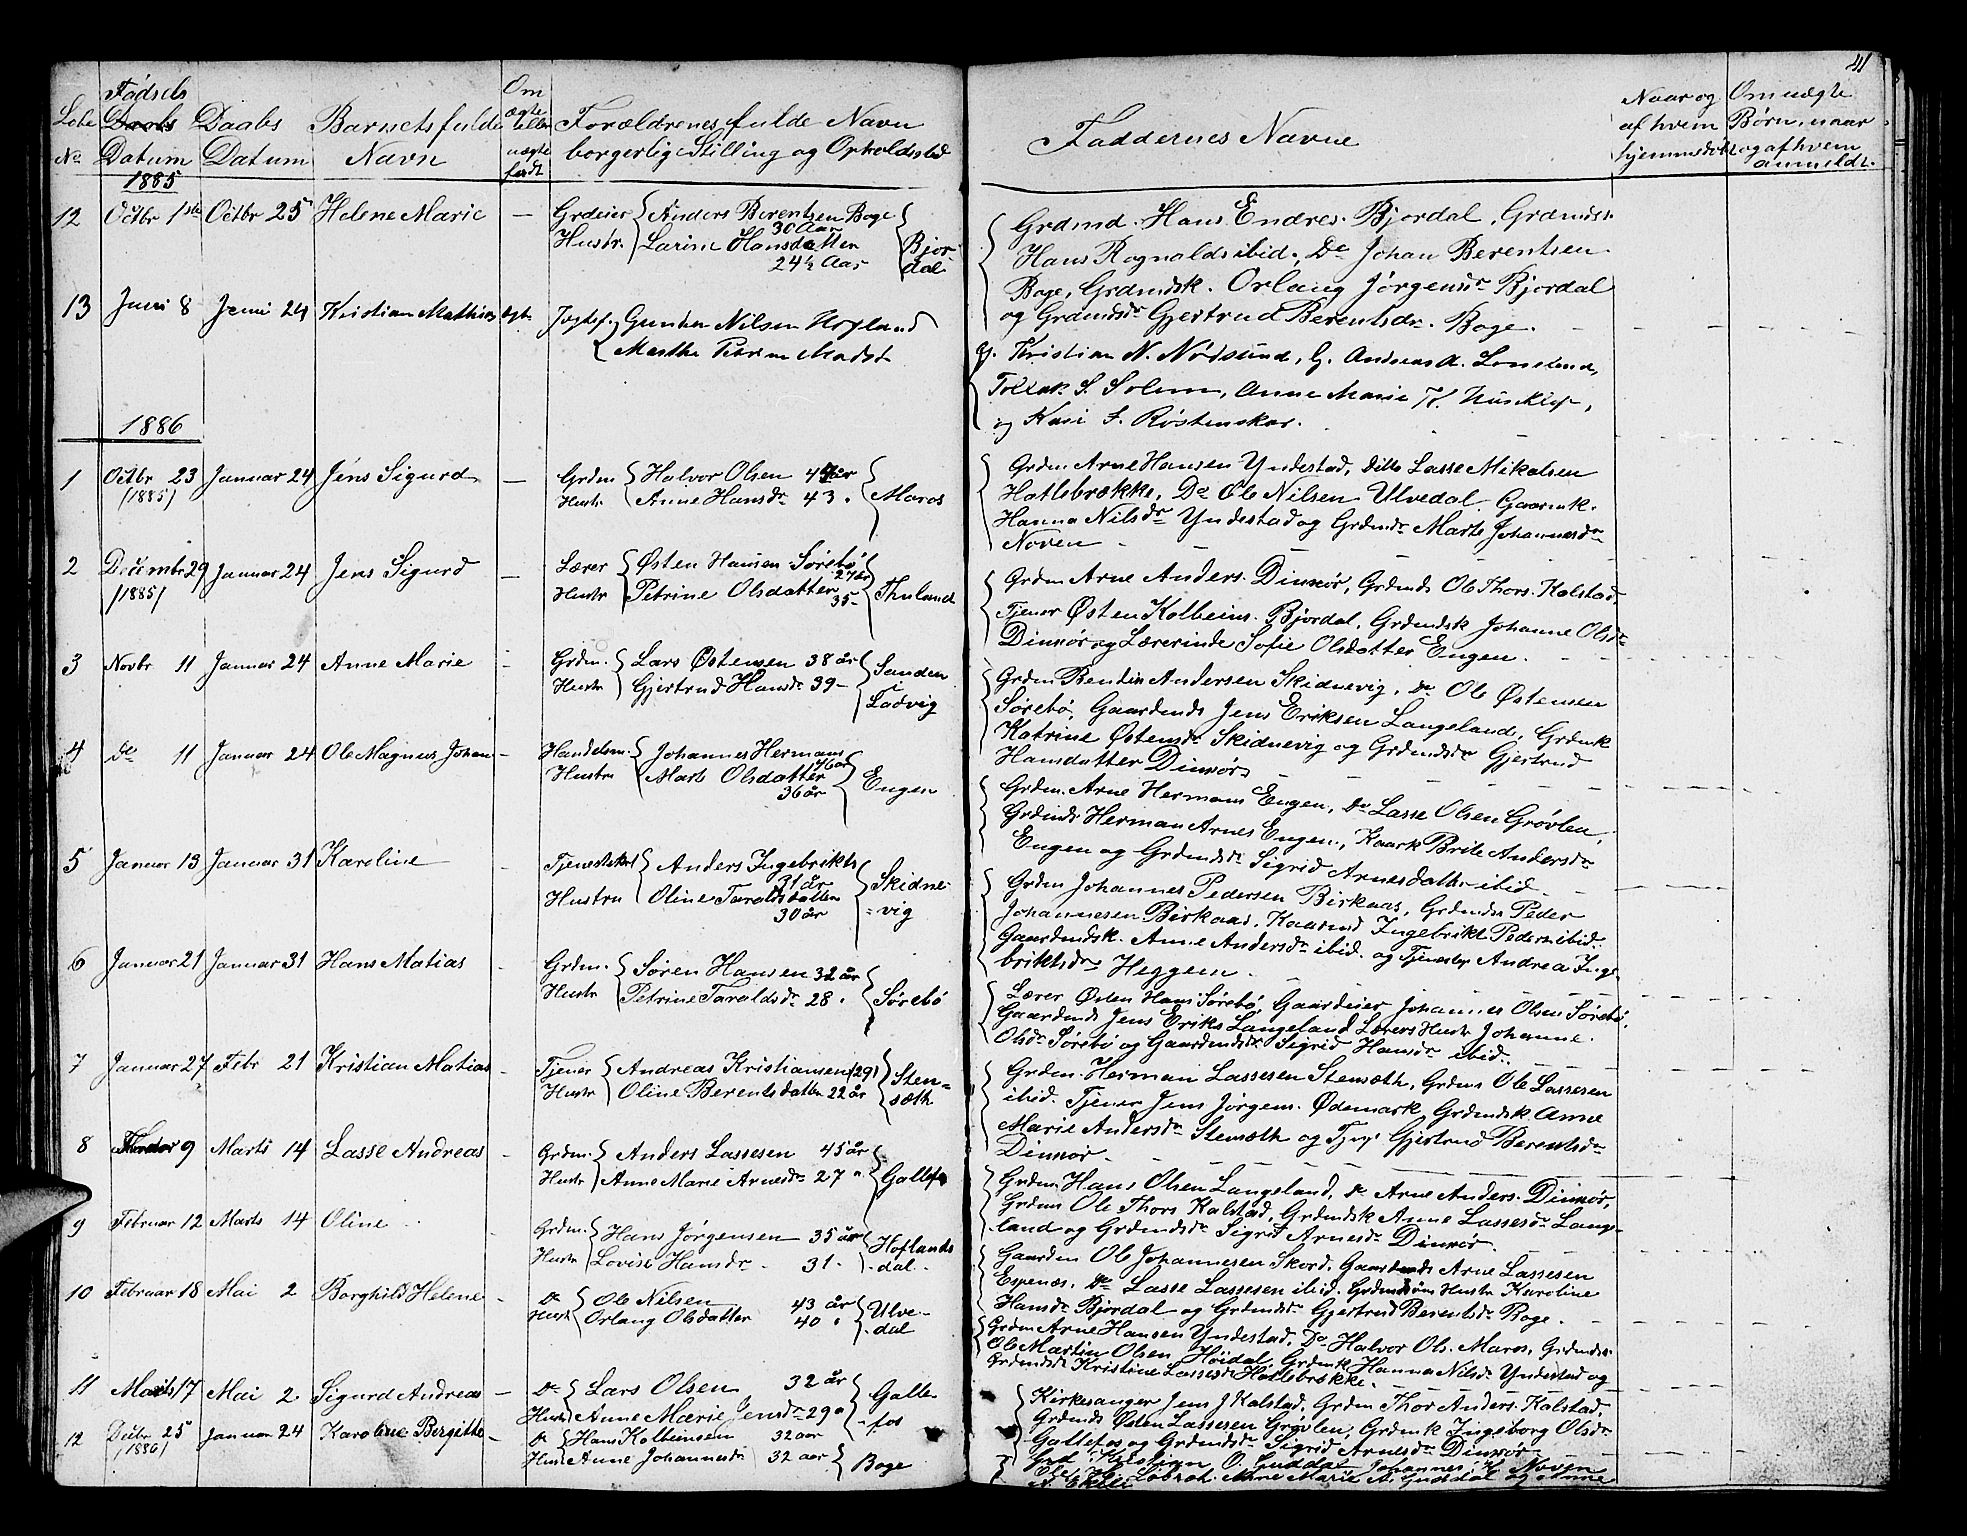 41
Løbe No. Fødsels Datum Daabs Datum Barnets fulde Navn Om ægte eller uægte født Forældrenes fulde Navn borgerlig Stilling og Opholdssted
Faddernes Navne
Naar og af hvem hjemmedøbt
Om uægte Børn, naar og af hvem anmeldt.
1885
12 Octbr 1ste Octbr 25 Helene Marie — Grdeier Anders Berentsen Boge 30 Aar
Hustr. Larine Hansdatter 24½ Aar Bjordal
Grdmd. Hans Endres. Bjordal, Grdmds.
Hans Ragnalds ibid., Do Johan Berentsen
Boge, Grdmdsk. Orlaug Jørgensdr Bjordal
og Grdmdsdr Gjertrud Berentsdr. Boge.
13 Juni 8 Juni 24 Kristian Mathias ægte Gunder Nilsen Hogland
Marthe Petrine Madsd
G. Kristian N. Nordsund, G. Andreas A.
Tollak S. Solem, Anne Marie H.
og Kari I. Røstenskar.
1886
1 Octbr 23 (1885) Januar 24 Jens Sigurd — Grdm. Halvor Olsen år
Hustr Anne Hansdr 43 Maros
Grdm Arne Hansen Yndestad, ditto Lasse Mikalsen
Hatlebrække, Do Ole Nilsen Ulvedal, Gaarmk.
Hanna Nilsdr Yndestad og Grdmdsdr Marte Johannesdr
Noven
2 Decembr 29 (1885) Januar 24 Jens Sigurd — Lærer Østen Hansen Sørebø 27 år
Hustr Petrine Olsdatter 35 Thuland
Grdm Arne Anders. Dinnør, Grdmds Ole Thors. Kalstad,
Tjener Østen Kolbeins. Bjordal, Grdmdsk Johanne Olsdr
Dinnør og Lærerinde Sofie Olsdatter Engen.
3 Novbr 11 Januar 24 Anne Marie — Grdm. Lars Østensen 38 år
Hustr Gjertrud Hansdr 39 — Sanden Ladvig
Grdm Bendix Andersen Skidnevig, do Ole Østensen
Sørebø, Gaardmds Jens Eriksen Langeland, Grdmk
Katrine Østensdr Skidnevig og Grdmdsdr Gjertrud
Hansdatter Dinnør
4 do 11 Januar 24 Ole Magnus Johan — Handelsm. Johannes Hermans 46 år
Hustru Marte Olsdatter 36 år Engen
Grdm. Arne Hermans Engen, Do Lasse Olsen Grøvlen,
Grdmds Herman Arnes Engen, Kaark Brite Andersdr
Engen og Grdmdsdr Sigrid Arnesdatter ibid.
5 Januar 13 Januar 31 Karoline — Tjenestekarl Anders Ingebrikts 31 år
Hustru Oline Taraldsdatter 30 år Skidnevig
Grdm Johannes Pedersen Birknas, Grdmds Peder
Johannesen Birknas, Kaarmd Ingebrikt Peders ibid.
Gaardmdsk. Anne Andersdr ibid. og Tjenestep Andrea Ingebriktsdr Heggem.
6 Januar 21 Januar 31 Hans Matias — Grdm. Søren Hansen 32 år
Hustr Petrine Taraldsdr 28 Sørebø
Lærer Østen Hans Sørebø, Gaardeier Johannes Olsen Sørebø,
Gaardmds Jens Eriks Langeland Lærers Hustr Johanne
Olsdr Sørebø og Gaardmdsdr Sigrid Hansdr ibid.
7 Januar 27 Febr 21 Kristian Matias — Tjener Andreas Kristiansen (29)
Hustr Oline Berentsdatter 22 år Stensæth
Grdm. Herman Lassesen Stensæth, Grdms Ole Lassesen
ibid. Tjener Jens Jørgens. Ødemark, Grdmdsk Anne
Marie Andersdr Stensæth og Tjp. Gjertrud Berentsdr
Dinnør.
8 9 Marts 14 Lasse Andreas — Grdm. Anders Lassesen 45 år
Hustr Anne Marie Arnesdr 27 Gallefos
Grdm Hans Olsen Langeland, do Arne Anders. Dinnør,
Grdm Ole Thors Kalstad, Grdmdsk Anne Lassesdr Langeland og Grdmdsdr Sigrid Arnesdr Dinnør.
9 Februar 12 Marts 14 Oline Grdm. Hans Jørgensen 35 år
Hustr Lovise Hansdr 31 Hoflandsdal
Gaardm Ole Johannesen Skord, Gaardmds Arne Lassesen
Espenæs, Do Lasse Lassesen ibid. Hustr Karoline
Hansdr Bjordal og Grdmdsdr Gjertrud Berentsdr Boge.
10 Februar 18 Mai 2 Borghild Helene — Do Ole Nilsen 43 år
Hustr Orlaug Olsdatter 40 Ulvedal
Grdm Arne Hansen Yndestad, Do Halvor Ols. Maros, Grdmds
Ole Martin Olsen Høidal, Grdmk Hanna Nilsdr Yndestad og
Grdmdsdr Kristine Lassesdr Hatlebrække.
11 Marts 17 Mai 2 Sigurd Andreas — Do Lars Olsen 32 år
Hustr Anne Marie Jensdr 29 Gallefos
Kirkesanger Jens J Kalstad, Grdm Thor Anders. Kalstad,
Grdmds Østen Lassesen Grøvlen, Grdmk Ingeborg Olsdr
Gallefos og Grdmdsdr Sigrid Arnesdr Dinnør
12 Decbr 25 (1886) Januar 24 Karoline Bergitte — Do Hans Kolbeinsen 32 aar
Hust Anne Johannesdr 32 aar Boge
Kristian O. Guddal, Johannes H. Noven
Anne Marie A. Guddal og Anne